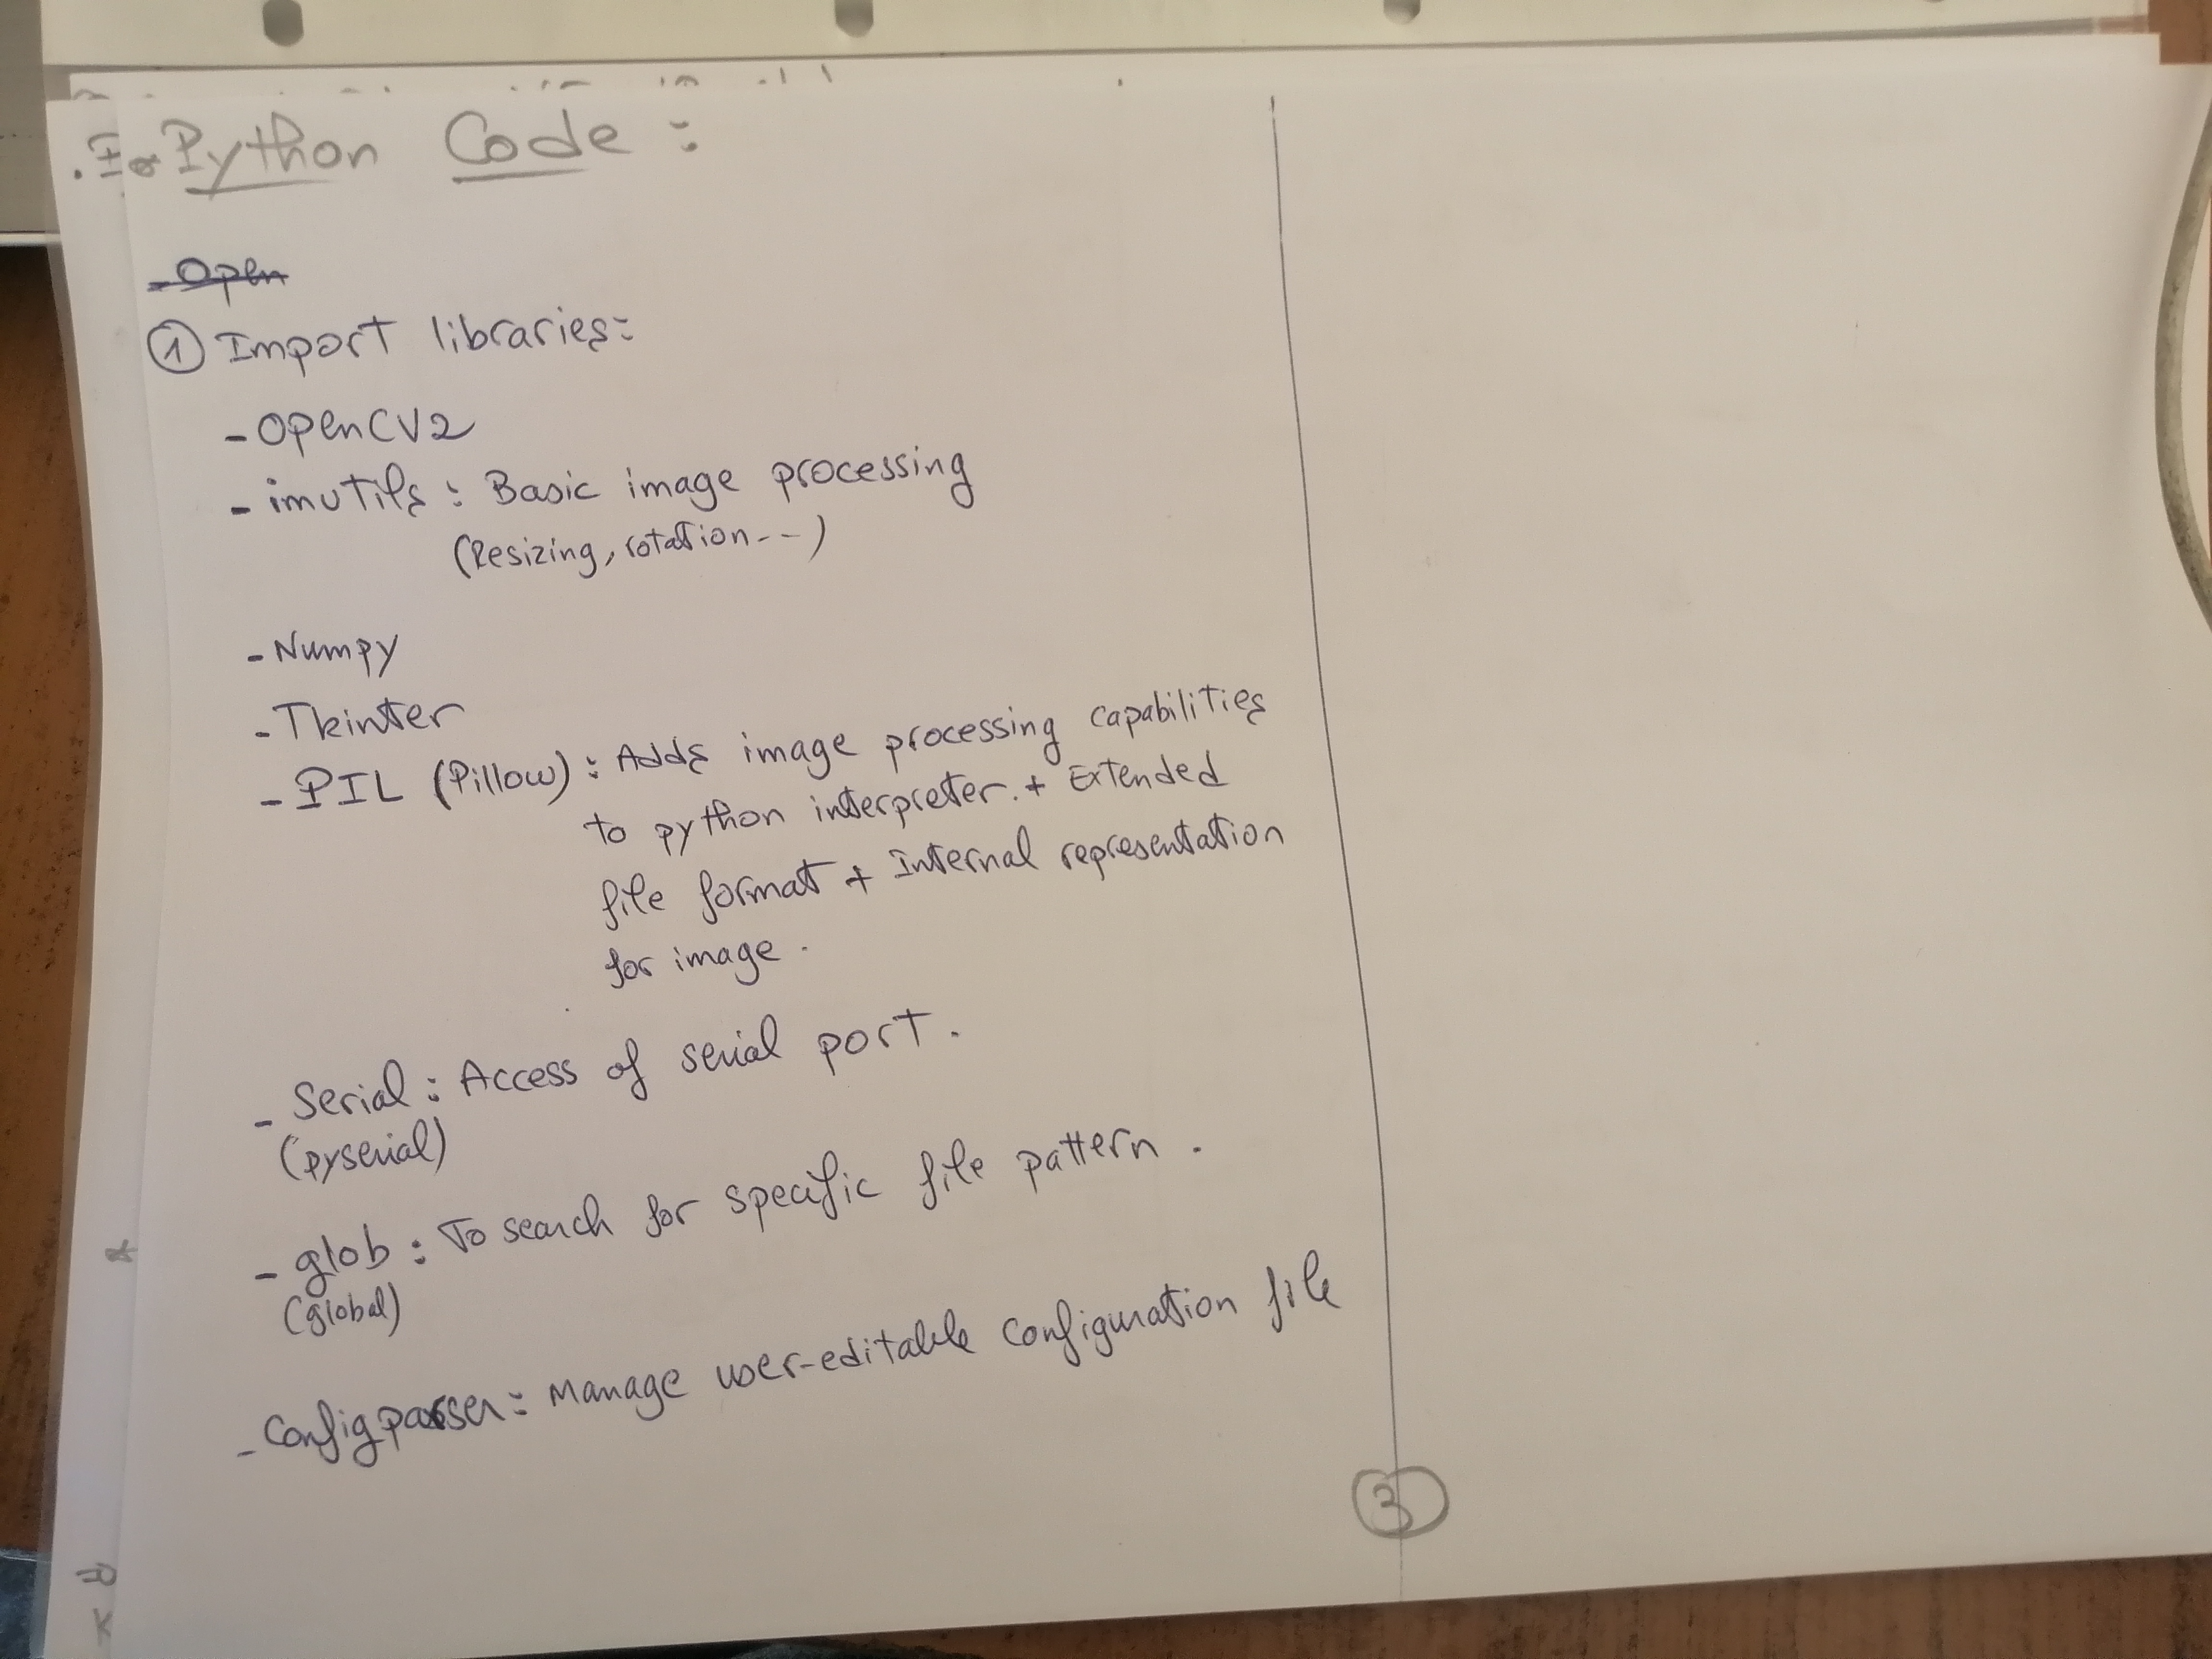 Python Code :
- Open
① Import libraries:
- OpenCV2
- imutils : Basic image processing
(Resizing, rotation--)
- Numpy
- Tkinter
- PIL (Pillow) : Adds image processing capabilities
to python interpreter. + Extended
file format + Internal representation
for image.
- Serial : Access of serial port.
(pyserial)
- glob : To search for specific file pattern.
(global)
- Configparser : Manage user-editable configuration file
3